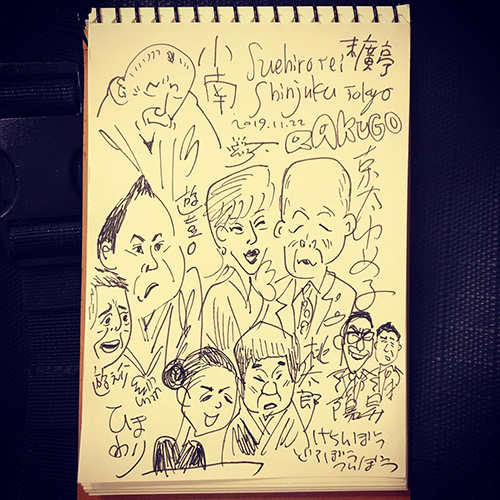 小南
Suehirotei
末廣亭
Shinjuku Tokyo
2019.11.22
RAKUGO
京太ゆめ子
桃太郎
陽昇
ひまわり
けちんぼう
どろぼう
つんぼう